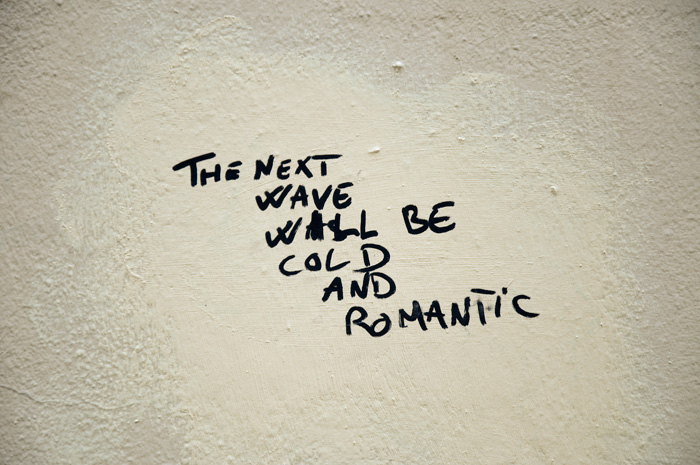 THE NEXT
WAVE
WILL BE
COLD
AND
ROMANTIC